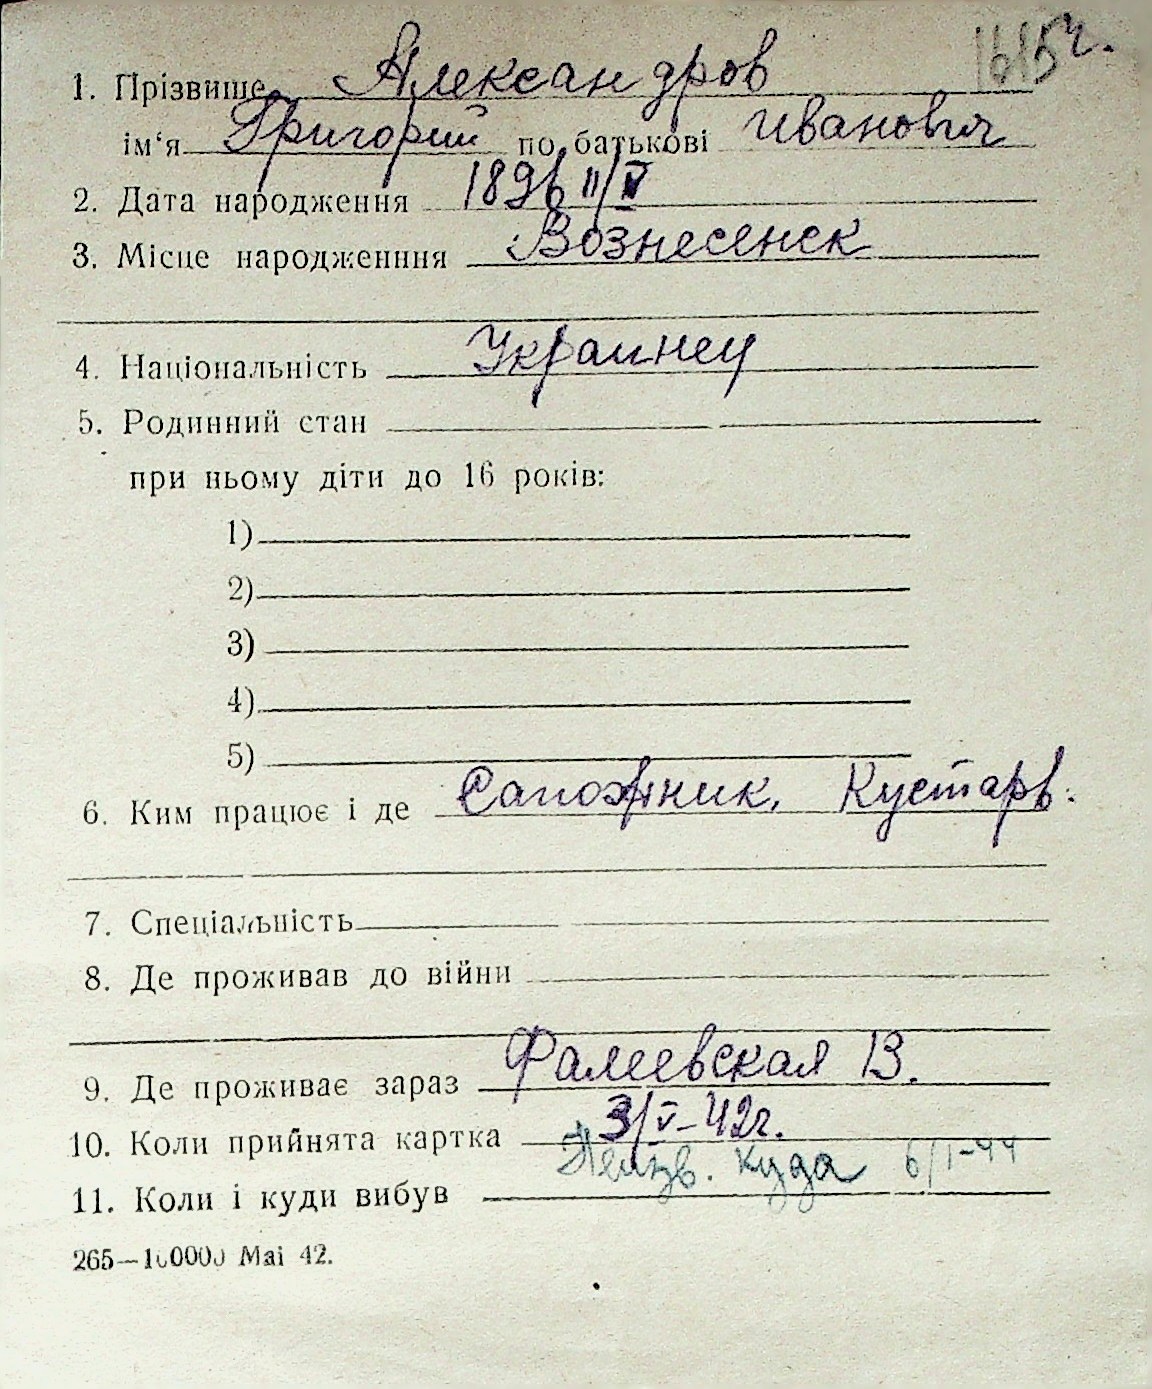 1615г.
1. Прізвище Александров
ім'я Григорий по батькові Иванович
2. Дата народження 1896 11/V
3. Місце народженння Вознесенск
4. Національність Украинец
5. Родинний стан
при ньому діти до 16 років:
1)
2)
3)
4)
5)
6. Ким працює і де Сапожник, Кустарь.
7. Спеціальність
8. Де проживав до війни
9. Де проживає зараз Фалеевская 13.
10. Коли прийнята картка 3/V-42г.
11. Коли і куди вибув Неизв. куда 6/I-44
265—100000 Mai 42.